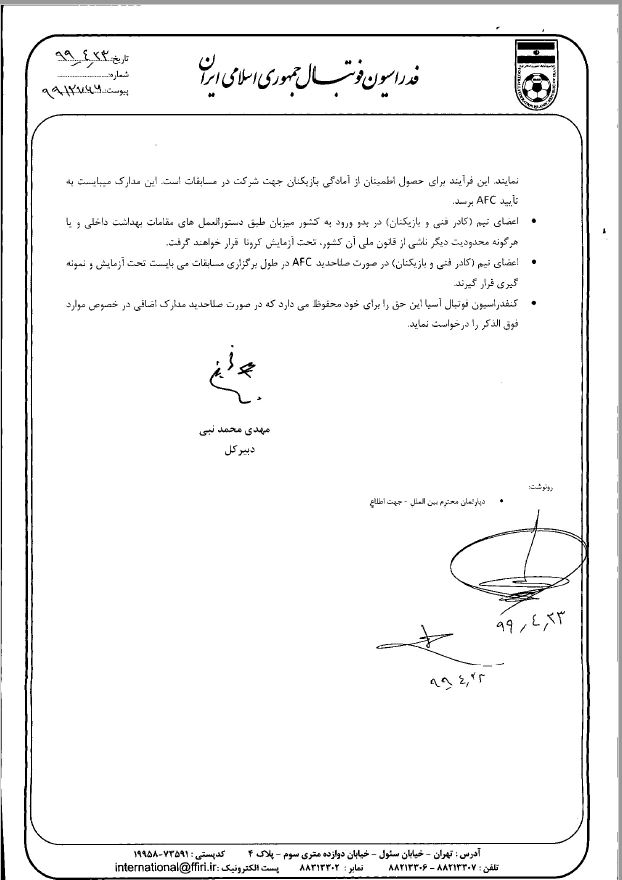 فدراسیون فوتبال جمهوری اسلامی ایران
تاریخ: ۹۹٫۴٫۲۳
شماره:
پیوست:
نمایند. این فرآیند برای حصول اطمینان از آمادگی بازیکنان جهت شرکت در مسابقات است. این مدارک میبایست به
تأیید AFC برسد.
• اعضای تیم (کادر فنی و بازیکنان) در بدو ورود به کشور میزبان طبق دستورالعمل های مقامات بهداشت داخلی و یا
هرگونه محدودیت دیگر ناشی از قانون ملی آن کشور، تحت آزمایش کرونا قرار خواهند گرفت.
• اعضای تیم (کادر فنی و بازیکنان) در صورت صلاحدید AFC در طول برگزاری مسابقات می بایست تحت آزمایش و نمونه
گیری قرار گیرند.
• کنفدراسیون فوتبال آسیا این حق را برای خود محفوظ می دارد که در صورت صلاحدید مدارک اضافی در خصوص موارد
فوق الذکر را درخواست نماید.
مهدی محمد نبی
دبیرکل
رونوشت:
• دپارتمان محترم بین الملل - جهت اطلاع
۹۹٫۴٫۲۳
۹۹٫۴٫۲۳
آدرس : تهران - خیابان سئول - خیابان دوازده متری سوم - پلاک ۴ کدپستی : ۷۳۵۹۱-۱۹۹۵۸
تلفن : ۸۸۲۱۳۳۰۷ - ۸۸۲۱۳۳۰۶ نمابر : ۸۸۲۱۳۳۰۲ پست الکترونیک : international@ffiri.ir